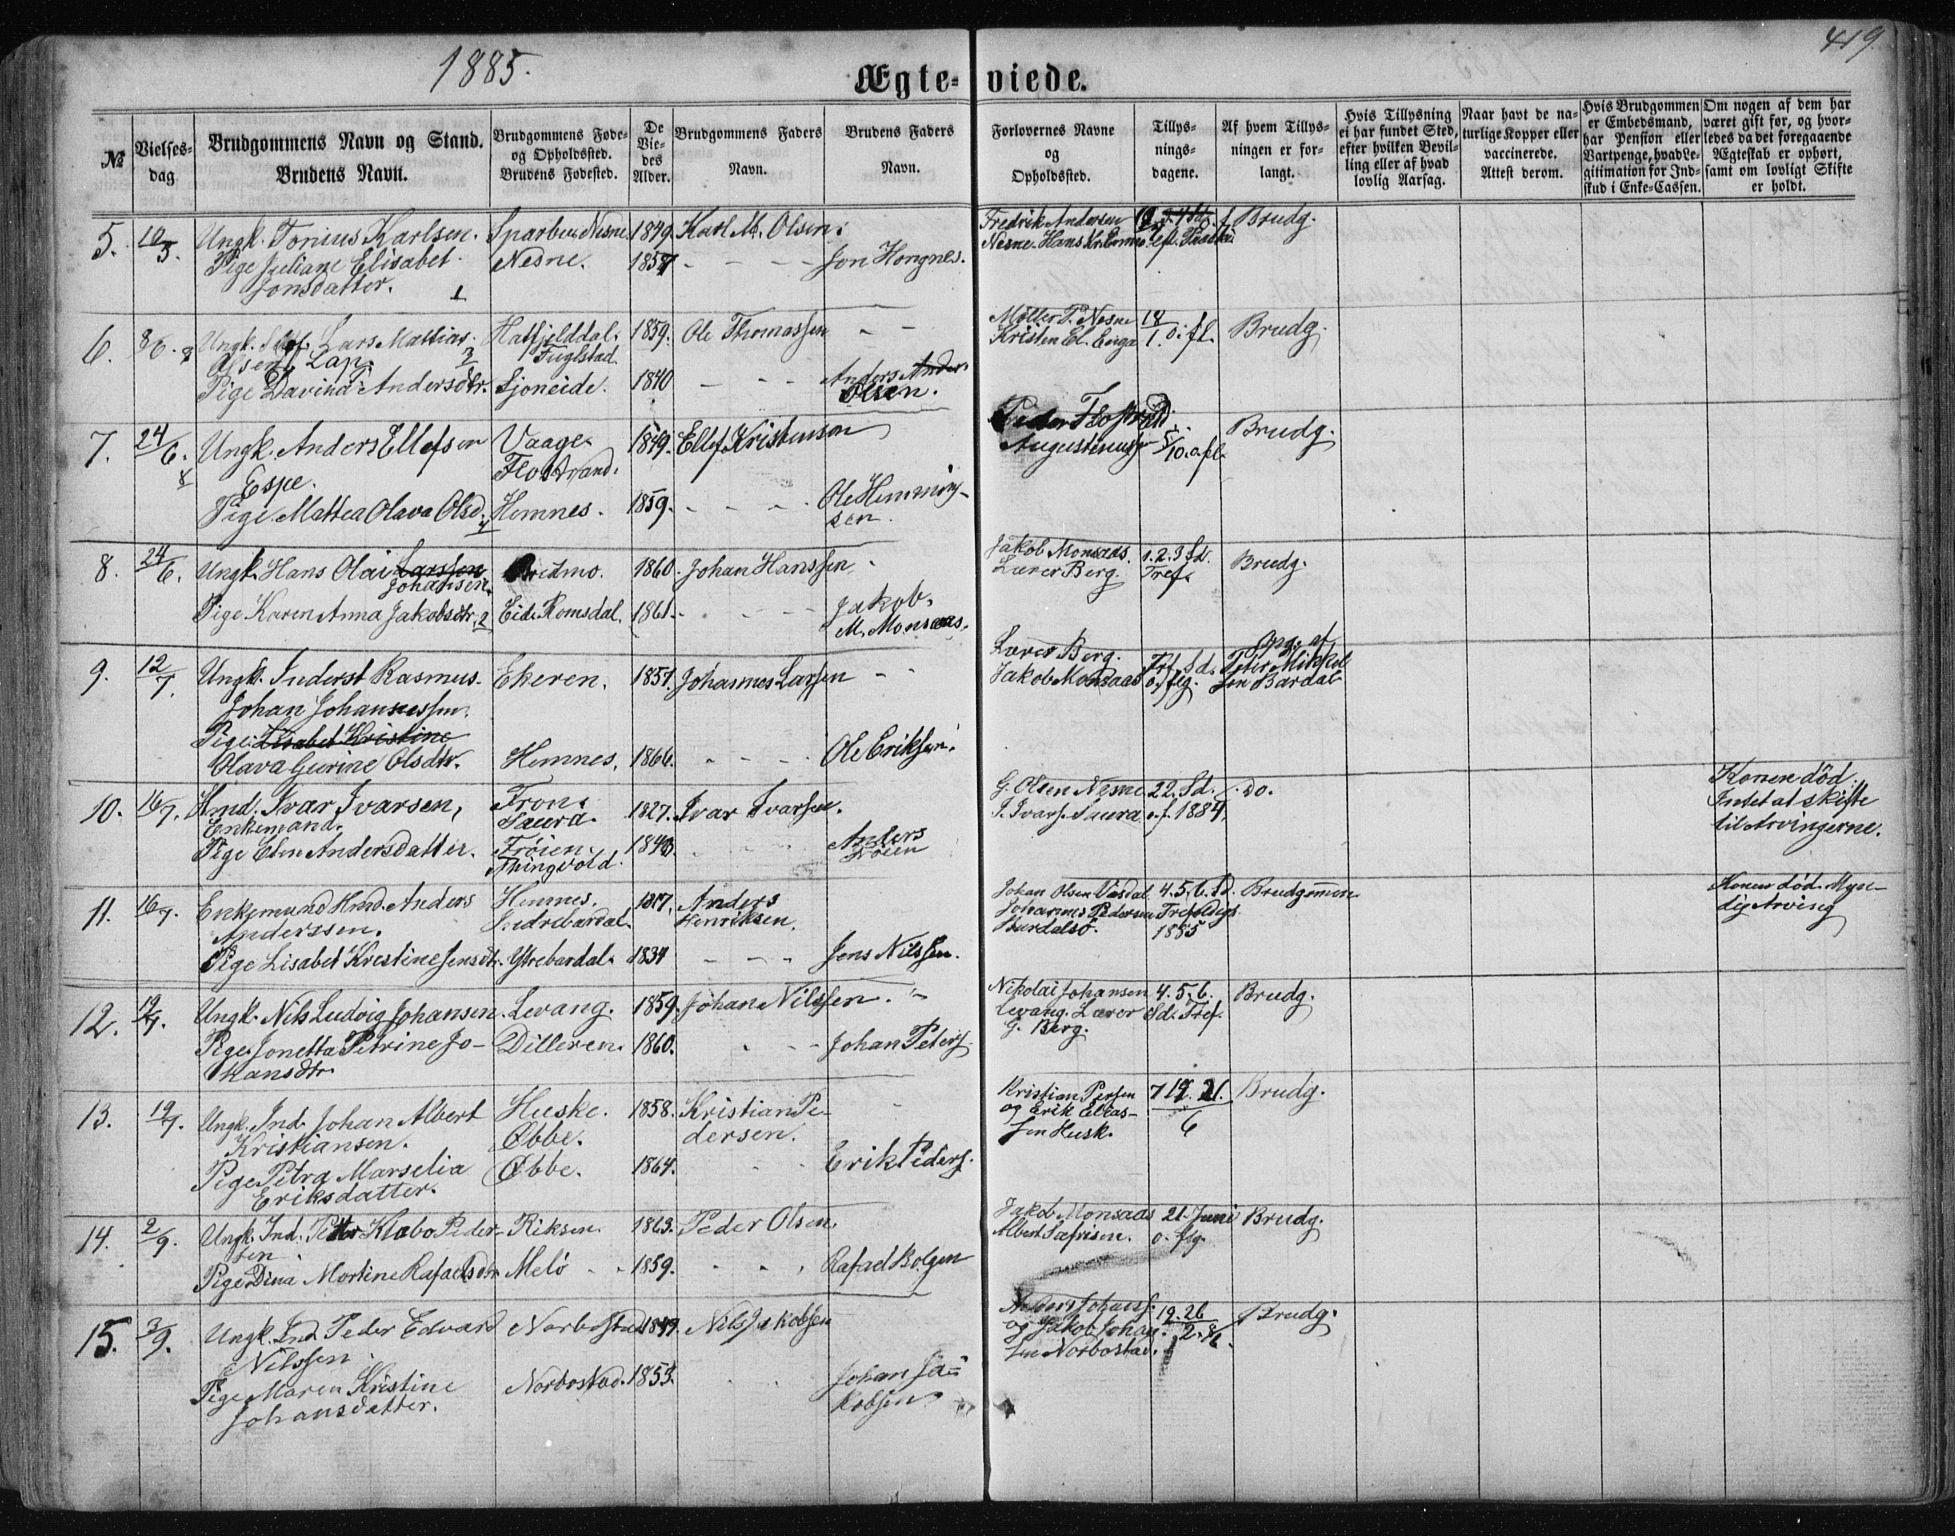 1885.
419
Ægte-viede.
№
Vielses-dag
Brudgommens Navn og Stand.
Brudens Navn.
Brudgommens Føde- og Opholdssted.
Brudens Fødested.
De Viedes Alder.
Brudgommens Faders Navn.
Brudens Faders Navn.
Forlovernes Navne og Opholdssted.
Tillysningsdagene.
Af hvem Tillysningen er forlangt.
Hvis Tillysning ei har fundet Sted, efter hvilken Bevilling eller af hvad lovlig Aarsag.
Naar havt de naturlige Kopper eller vaccinerede. Attest derom.
Hvis Brudgommen er Embedsmand, har Pension eller Vartpenge, hvad Legitimation for Indskud i Enke-Cassen.
Om nogen af dem har været gift før, og hvorledes da det foregaaende Ægteskab er ophørt, samt om lovligt Skifte er holdt.
5. 10/5. Ungk. Tonius Karlsen. Sparbu Nesne 1849. Karl M. Olsen. Fredrik Andersen Brudg.
Pige Juliane Elisabet Nesne. 1857 - - - - Jon Hongnes. Nesne. Hans Kr.
Jonsdatter. 1
6. 8/6. Ungk. Lars Mattias Hatfjelddal. 1859. Ole Thomassen - - Møller P. Nesne 18/1 o. fl. Brudg.
Olsen Lap. Fuglstad. Kristen El. Enga
Pige Davind. Andersdtr. Sjoneide. 1840 - - - Anders
Olsen.
7. 24/6. Ungk. Anders Ellefsen Vaage. 1849. Ellef Kristensen Peder Flostrand Brudg.
Espe. Flostrand. Augustinus
Pige Mattea Olava Olsd. Hemnes. 1859. - - - Ole Henning-
sen.
8. 24/6. Ungk. Hans Olai Larssen Bredmo. 1860. Johan Hanssen Jakob Monsaas. 1. 2. 3 Sd. Brudg.
Johansen. Lærer Berg. Tref.
Pige Karen Anna Jakobsdtr. 2 Eid. Romsdal. 1861. - - - Jakob.
M. Monsaas.
9. 12/7. Ungk. Inderst Rasmus Ekeren. 1857. Johannes Larsen - Lærer Berg. Trf. Sd. Opg. af
Johan Johannessen. Jakob Monsaas o. flg. Peter Mikkel
sen Bardal
Pige Lisabet Kristine
Olava Gurine Olsdtr. Hemnes. 1866. - - - Ole Eriksen.
10. 16/7. Hmd. Ivar Ivarsen, Fron. 1827. Ivar Ivarsen. G. Olsen Nesne 22. Sd. do. Konen død.
Enkemand. Saura. I. Ivars. Saura e. f. 1884. Intet at skifte
Pige Elen Andersdatter. Frøien. 1843 - - - Anders til Arvingerne.
Thingvold. Frøien
11. 16/7. Enkemand Hmd. Anders Hemnes. 1817. Anders Johan Olsen Vasdal 4. 5. 6. Sd. Brudgommen Konen død. Myn-
Anderssen. Indrebardal. Henriksen. Johannes Pedersen Trefoldigh. dig Arving
Pige Lisabet Kristine Jensdtr. Ytrebardal. 1834 - - - Jens Nilssen. Bardalsø. 1885
12. 19/7. Ungk. Nils Ludvig Johansen. Levang. 1859. Johan Nilssen. - Nikolai Johansen 4. 5. 6. Brudg.
Levang. Lærer Sd. Tref.
G. Berg.
Pige Jonetta Petrine Jo- Dilleren. 1860. - - Johan Peters.
hansdtr.
13. 19/7. Ungk. Ind. Johan Albert Huske. 1858. Kristian Pe- Kristian Persen 7 14. 21. Brudg.
Kristiansen. Øbbe. dersen. og Erik Elias- 6
Pige Petra Marselia Øbbe. 1864. Erik Peders. sen Husk.
Eriksdatter.
14. 2/9. Ungk. Ind. Petter Klabo Peder- Riksen. 1863. Peder Olsen. Jakob Monsaas 21. Juni Brudg.
sen. Albert o. flg.
Pige Dina Mortine Rafaelsdtr. Melø - - 1859. - - Rafael Bolgen
15. 3/9. Ungk. Ind. Peder Edvard Norbostad 1849. Nils Jakobsen Anders Johans. 19. 26 Brudg.
Nilssen. og Jakob Johan-
Pige Maren Kristine Norbostad. 1853. Johan Ja- sen Norbostad.
Johansdatter. kobsen